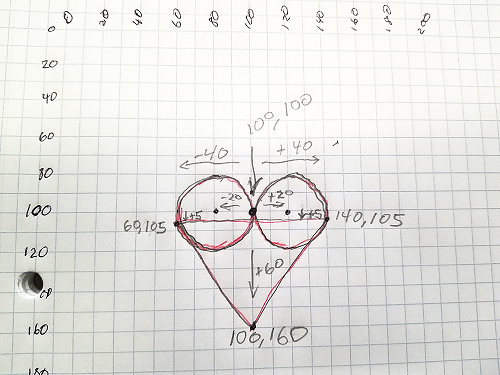 0 20 40 60 80 100 120 140 160 180 200
0
20
40
60
100,100
-40 +40
80
-20 +20
100
↓+5 ↓+5
60,105
140,105
120
+60
160
100,160
180